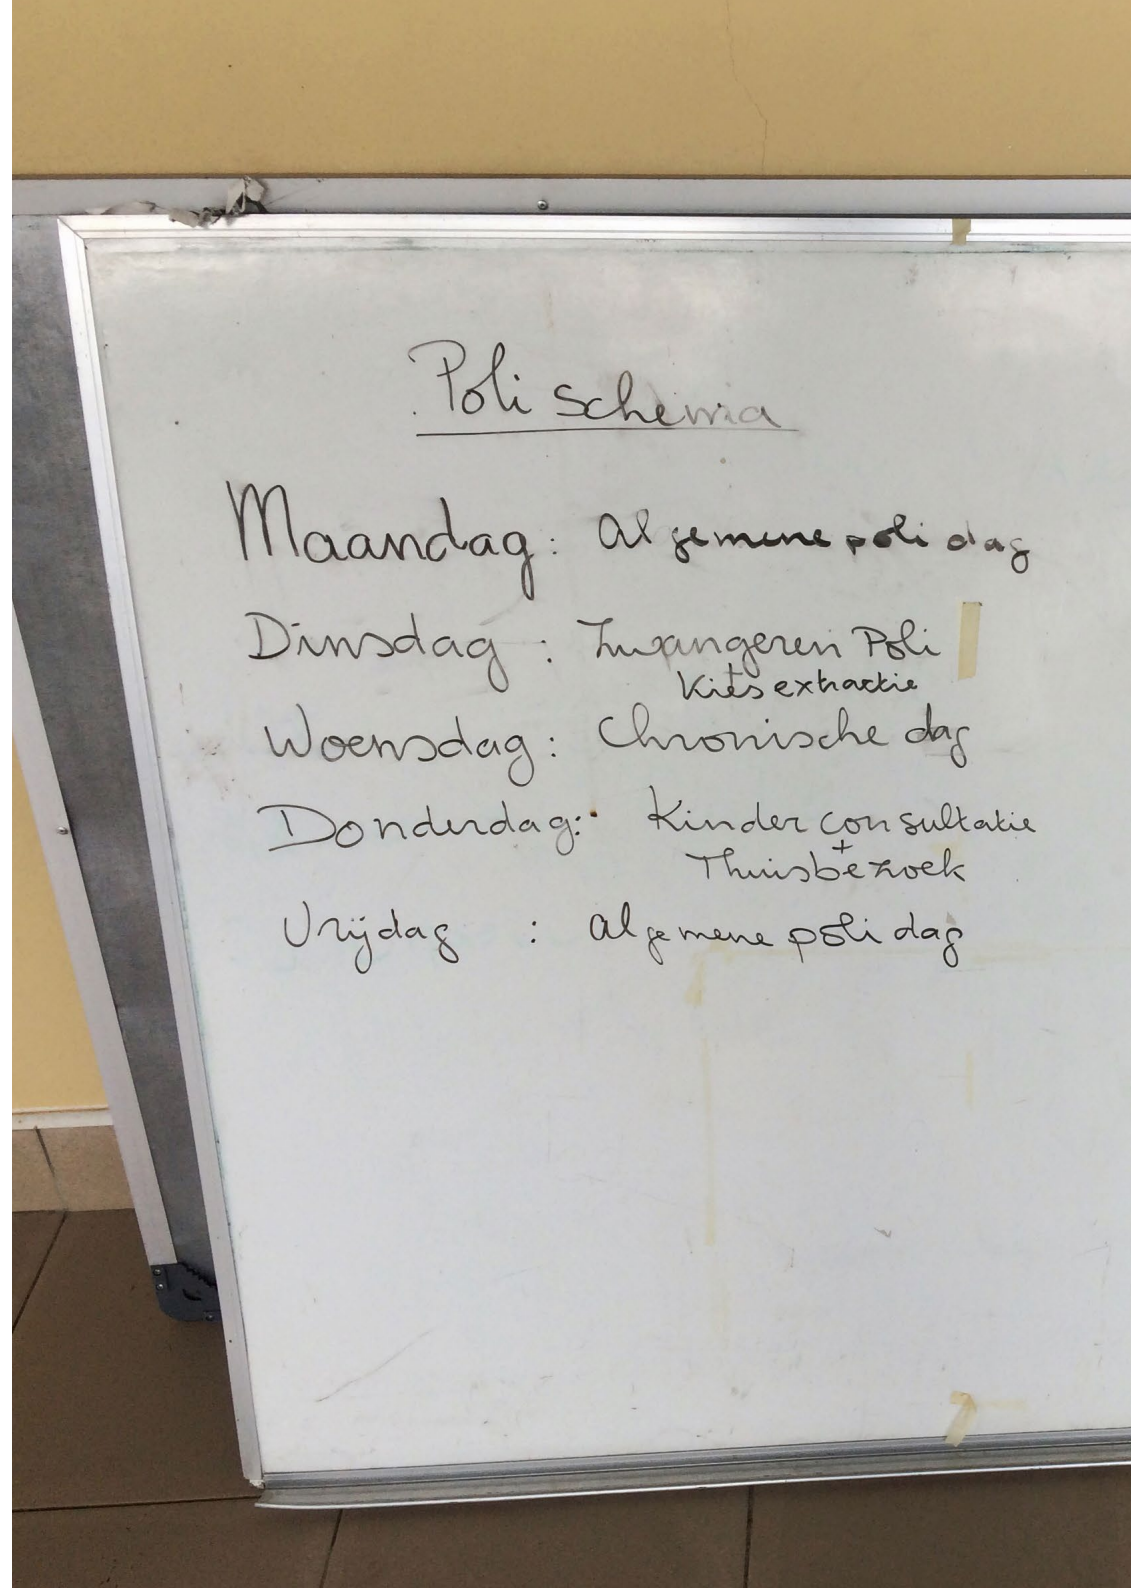 Poli Schema
Maandag: Algemene poli dag
Dinsdag: Zwangeren Poli
+
Kies extractie
Woensdag: Chronische dag
Donderdag: Kinder consultatie
+
Thuisbezoek
Vrijdag: Algemene poli dag